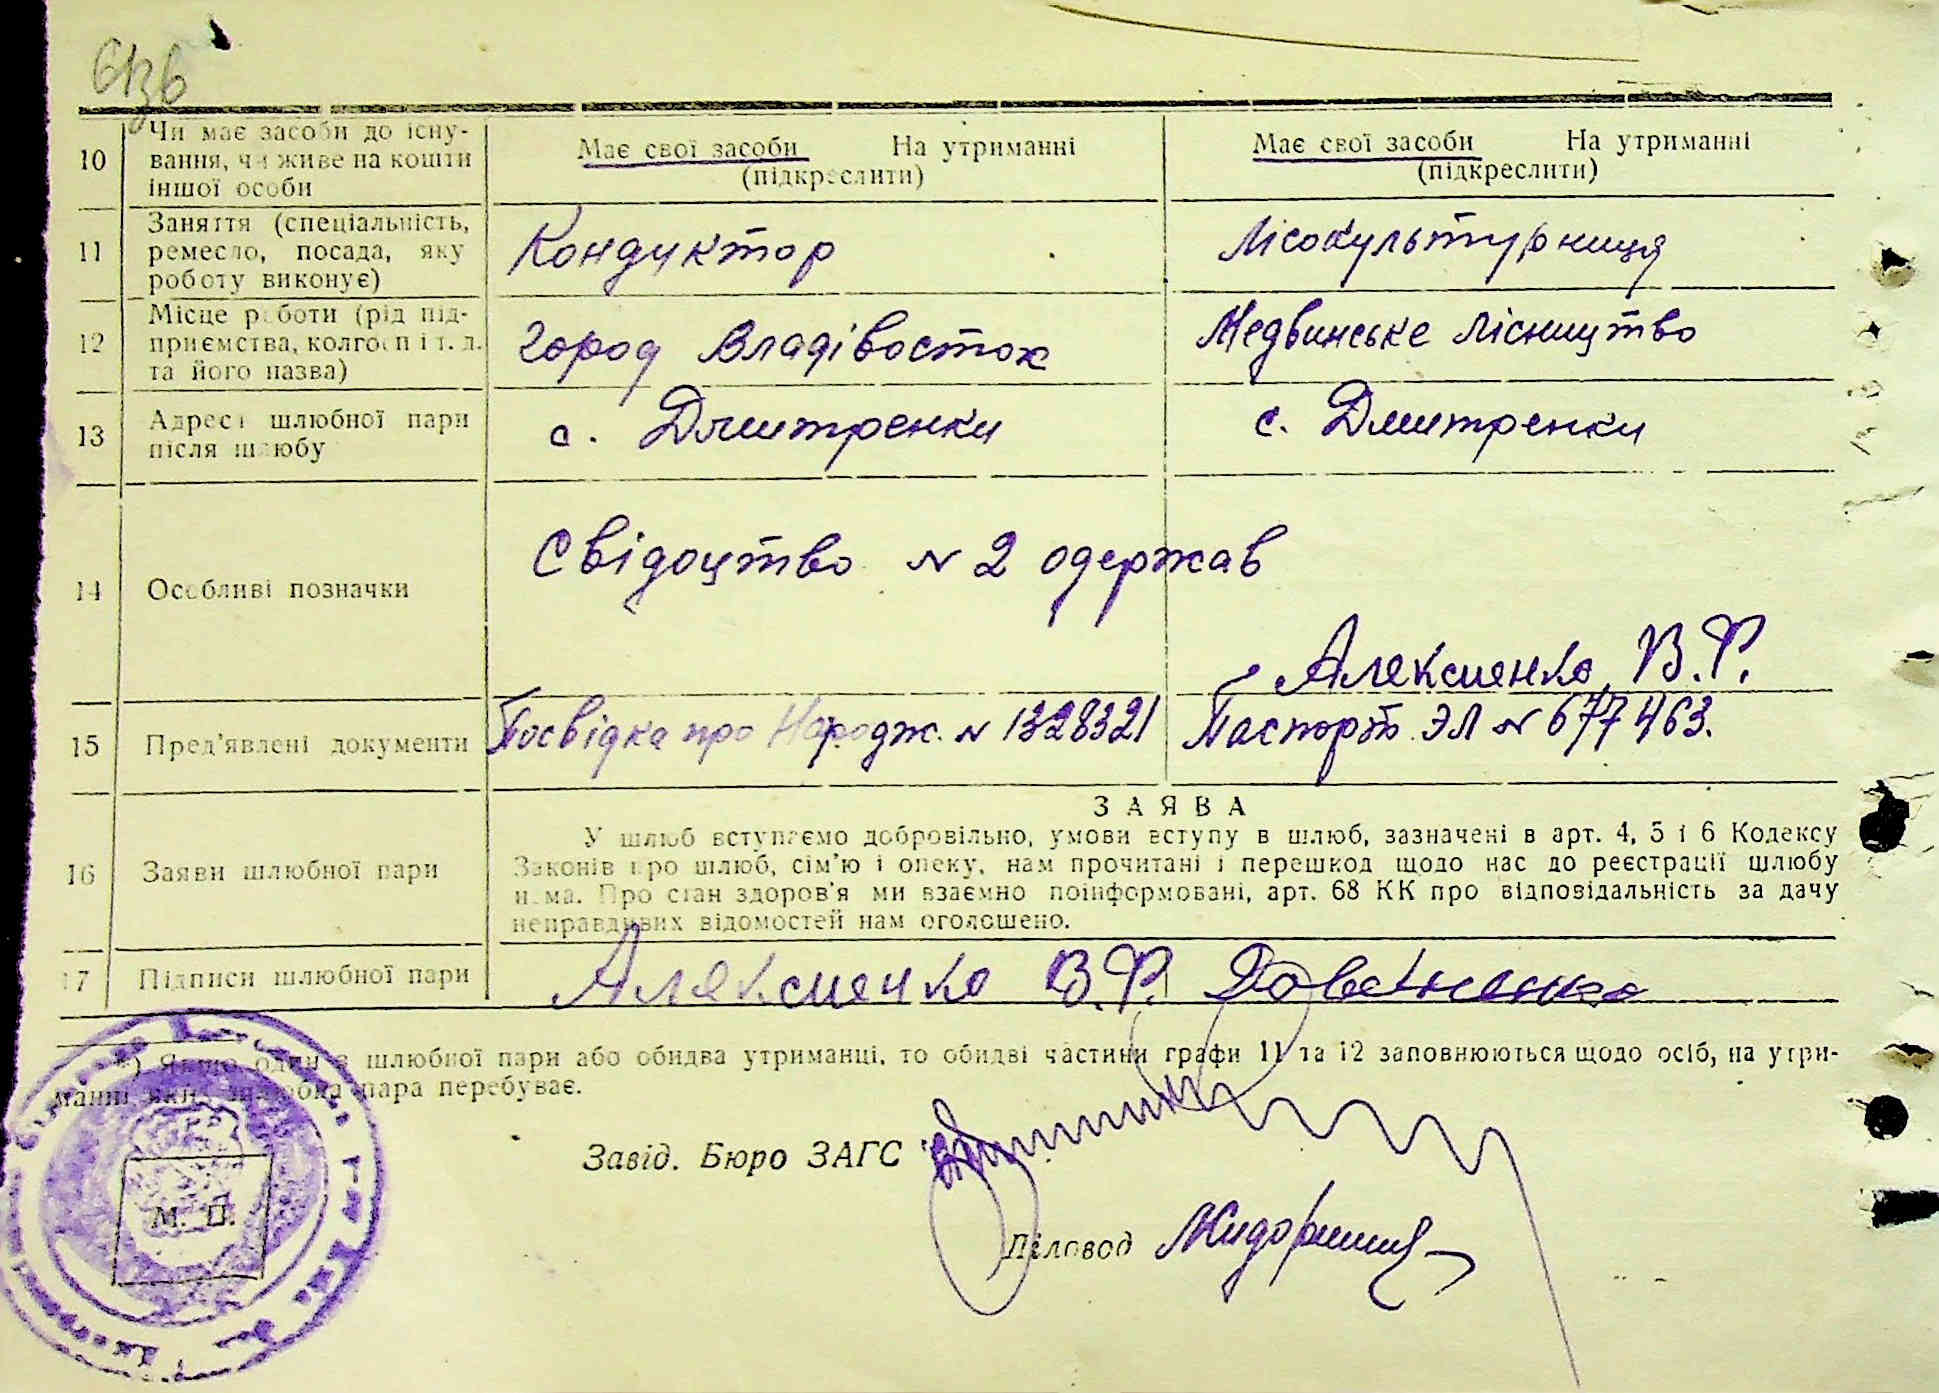 10 Чи має засоби до існу-
вання, чи живе на кошти
іншої особи
Має свої засоби На утриманні
(підкреслити)
Має свої засоби На утриманні
(підкреслити)
11 Заняття (спеціальність,
ремесло, посада, яку
роботу виконує)
Кондуктор
Лісокультурниця
12 Місце роботи (рід під-
приємства, колгосп і т. д.
та його назва)
город Владівосток
Медвинське лісництво
13 Адреса шлюбної пари
після шлюбу
с. Дмитренки
с. Дмитренки
14 Особливі позначки
Свідоцтво N 2 одержав
Алексиенко В.Ф.
15 Пред'явлені документи
Посвідка про Народж. N 1328321
Паспорт ЭЛ N 677463.
16 Заяви шлюбної пари
ЗАЯВА
У шлюб вступаємо добровільно, умови вступу в шлюб, зазначені в арт. 4, 5 і 6 Кодексу
Законів про шлюб, сім'ю і опеку, нам прочитані і перешкод щодо нас до реєстрації шлюбу
нема. Про стан здоров'я ми взаємно поінформовані, арт. 68 КК про відповідальність за дачу
неправдивих відомостей нам оголошено.
17 Підписи шлюбної пари
Алексиенко В.Ф.
*) Якщо один з шлюбної пари або обидва утриманці, то обидві частини графи 11 та 12 заповнюються щодо осіб, на утри-
манні яких шлюбна пара перебуває.
Завід. Бюро ЗАГС
М. П.
Діловод